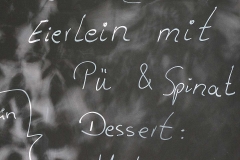 Eierlein mit
Pü & Spinat
Dessert: